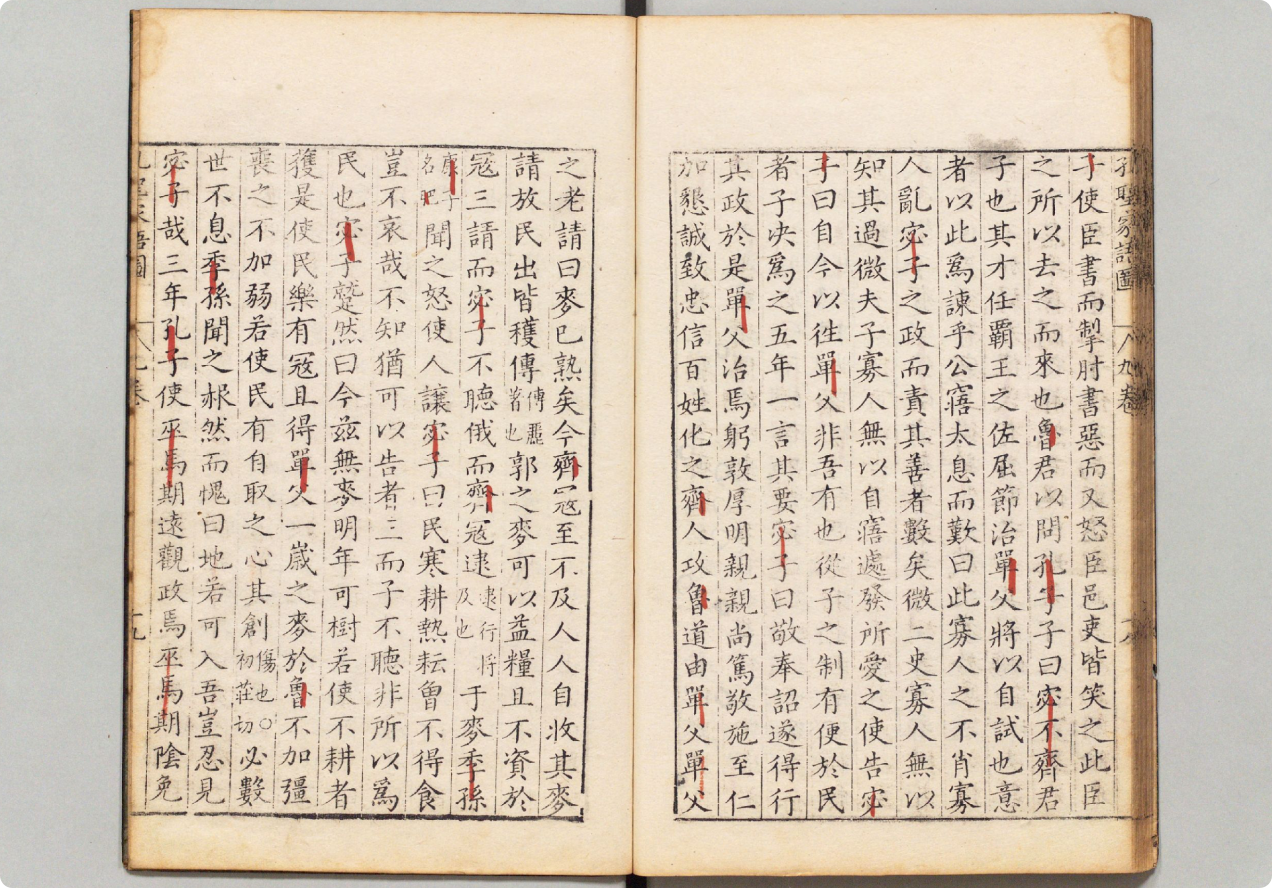 孔聖家語圖 八九卷
子使臣書而掣肘書惡而又怒臣邑吏皆笑之此臣
之所以去之而來也魯君以問孔子子曰宓不齊君
子也其才任霸王之佐屈節治單父將以自試也意
者以此爲諫乎公寤太息而歎曰此寡人之不肖寡
人亂宓子之政而責其善者數矣微二史寡人無以
知其過微夫子寡人無以自寤處發所愛之使告宓
子曰自今以徃單父非吾有也從子之制有便於民
者子决爲之五年一言其要宓子曰敬奉詔遂得行
其政於是單父治焉躬敦厚明親親尚篤敬施至仁
加懇誠致忠信百姓化之齊人攻魯道由單父單父
之老請曰麥已熟矣今齊寇至不及人人自收其麥
請放民出皆穫傳
傳麗
著也
郭之麥可以益糧且不資於
寇三請而宓子不聽俄而齊寇逮
逮行將
及也
于麥季孫
康子
名肥
聞之怒使人讓宓子曰民寒耕熱耘曾不得食
豈不哀哉不知猶可以告者三而子不聽非所以爲
民也宓子蹵然曰今茲無麥明年可樹若使不耕者
獲是使民樂有寇且得單父一歲之麥於魯不加彊
喪之不加弱若使民有自取之心其創
傷也○
初莊切
必數
世不息季孫聞之赧然而愧曰地若可入吾豈忍見
宓子哉三年孔子使巫馬期遠觀政焉巫馬期陰免